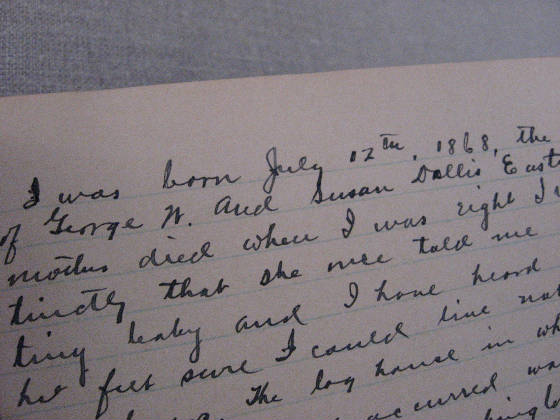 I was born July 12th, 1868, the
of George W. and Susan Dollis East
mother died when I was eight I
tinctly that she once told me
tiny baby and I have heard
her felt sure I could live not
The log house in wh
occurred wa